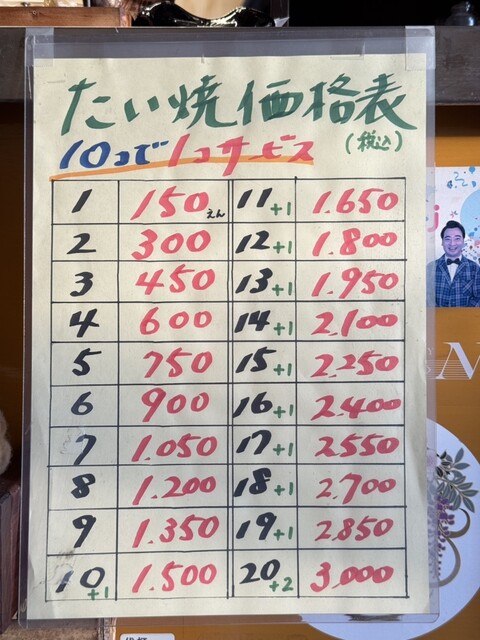 たい焼価格表
10コで1コサービス
(税込)
1 150えん 11+1 1.650
2 300 12+1 1.800
3 450 13+1 1.950
4 600 14+1 2,100
5 750 15+1 2.250
6 900 16+1 2.400
7 1.050 17+1 2550
8 1.200 18+1 2.700
9 1.350 19+1 2.850
10+1 1.500 20+2 3,000